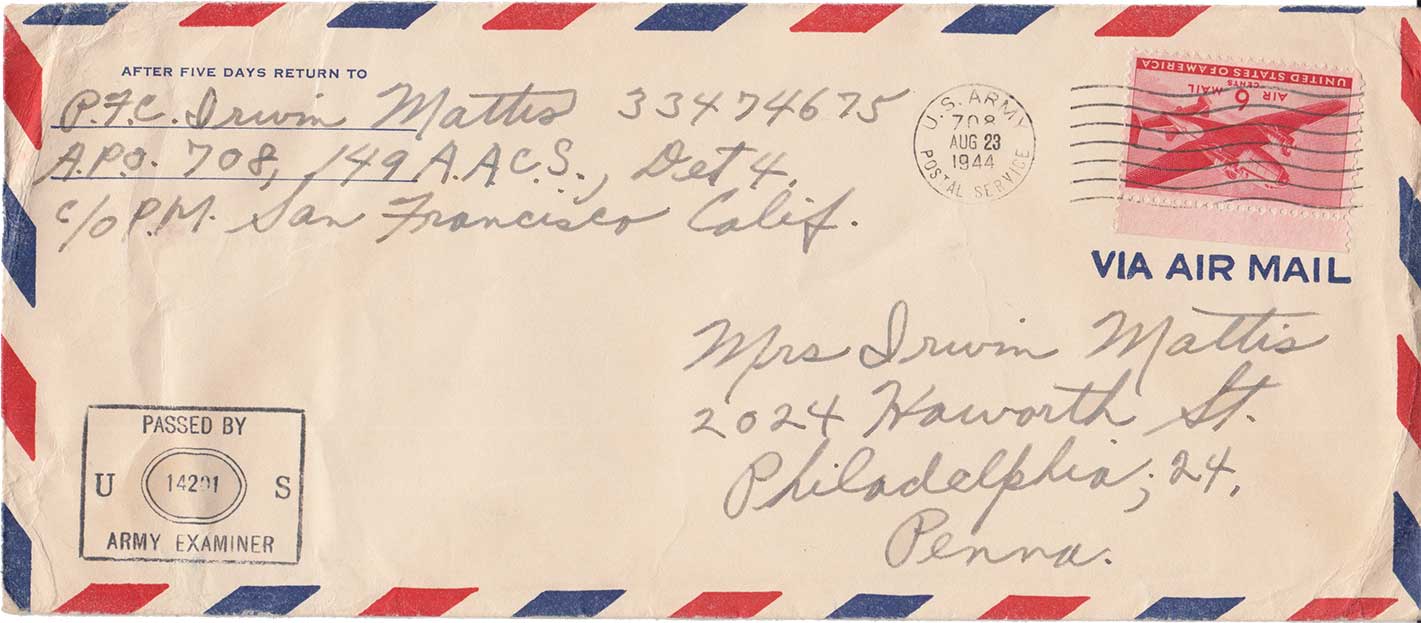 AFTER FIVE DAYS RETURN TO
P.F.C. Irwin Mattis 33474675
A.P.O. 708, 149 A.A.C.S., Det 4.
c/o P.M. San Francisco Calif.
U.S. ARMY
708
AUG 23
1944
POSTAL SERVICE
UNITED STATES OF AMERICA
6 CENTS
AIR MAIL
VIA AIR MAIL
Mrs Irwin Mattis
2024 Haworth St.
Philadelphia, 24,
Penna.
PASSED BY
U S
ARMY EXAMINER